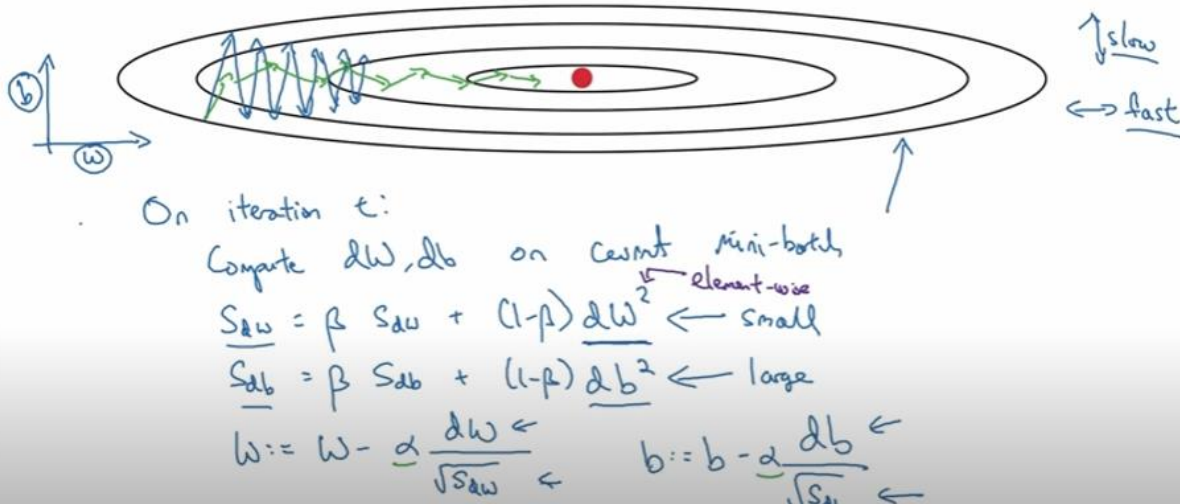 b
w
slow
fast
On iteration t:
Compute dW, db on current mini-batch
element-wise
Sdw = β Sdw + (1-β) dW² ← small
Sdb = β Sdb + (1-β) db² ← large
w := w - α dw / √Sdw
b := b - α db / √Sdb